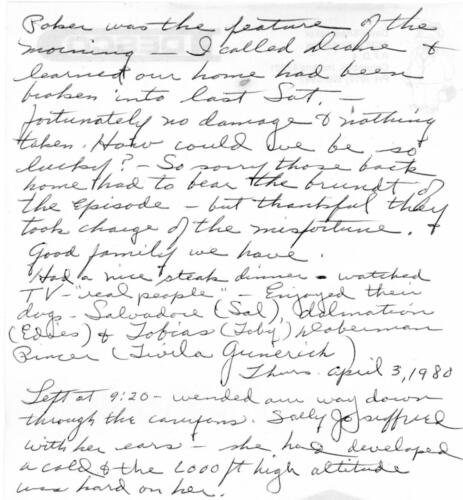 Poker was the feature of the
morning – I called Diane &
learned our home had been
broken into last Sat. –
fortunately no damage & nothing
taken. How could we be so
lucky? – So sorry those back
home had to bear the brundt of
the episode – but thankful they
took charge of the misfortune. &
Good family we have.
Had a nice steak dinner – watched
TV – "real people" – Enjoyed their
dogs – Salvadore (Sal), dalmation
(Eddies) & Tobias (Toby) doberman
Pincer (Twila Gunerich)
Thurs. April 3, 1980
Left at 9:20 – wended our way down
through the canyons. Sally Jo suffered
with her ears – she had developed
a cold & the 6000 ft high altitude
was hard on her.